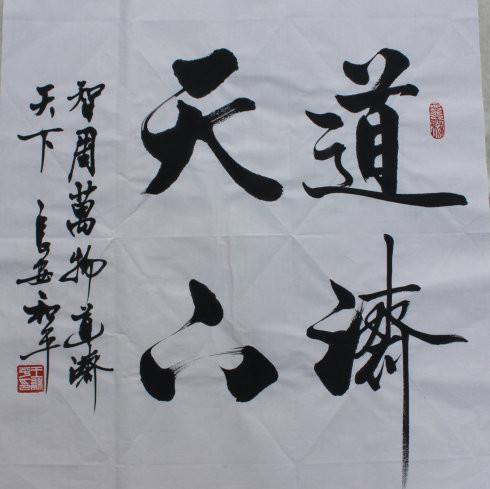 道濟
天下
智周萬物道濟
天下 長安和平